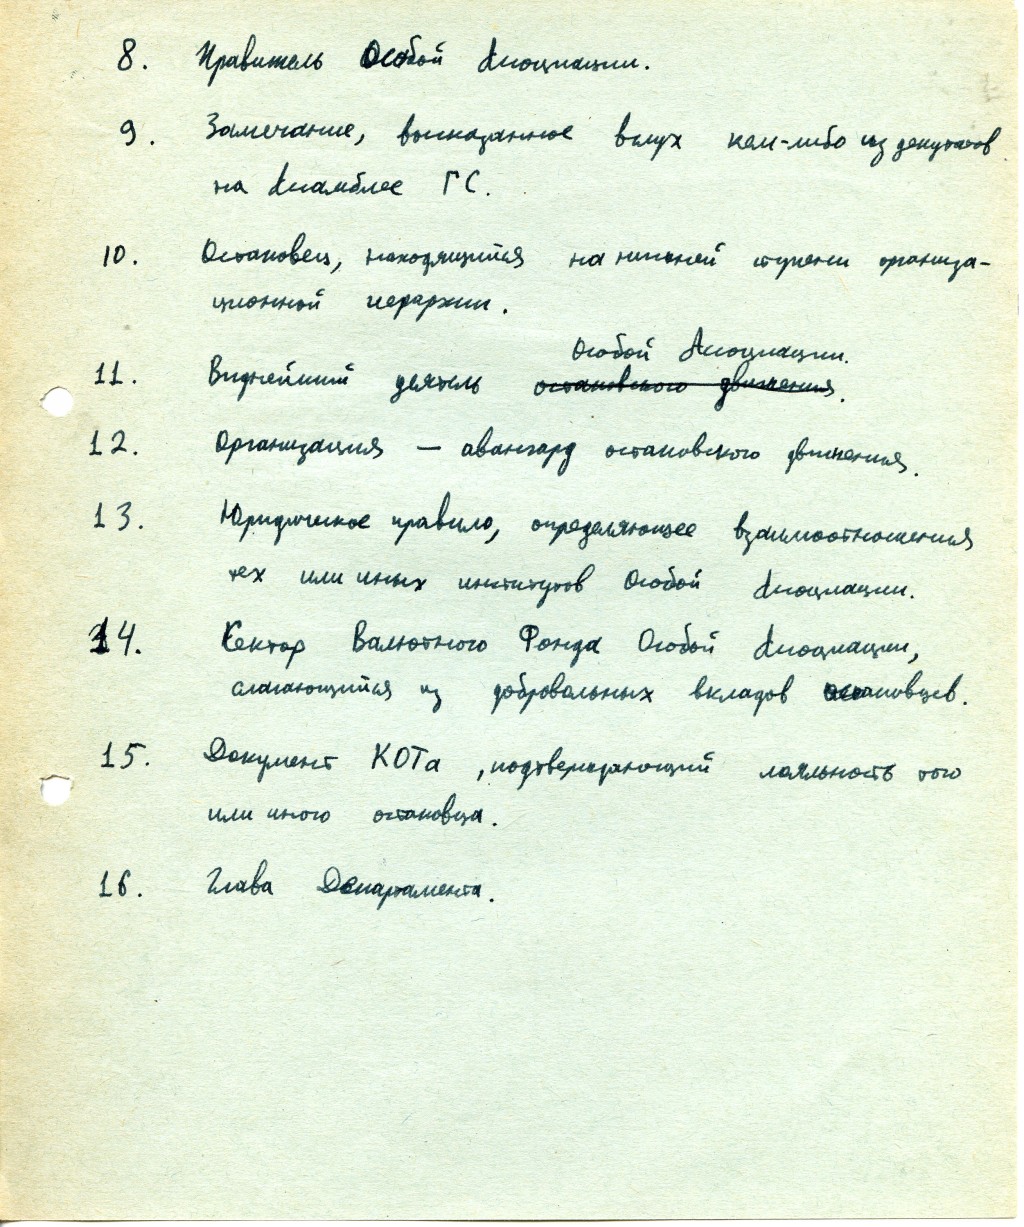 8. Правитель Особой Ассоциации.
9. Замечание, высказанное вслух кем-либо из депутатов
на Ассамблее ГС.
10. Остановец, находящийся на низшей ступени организа-
ционной иерархии.
Особой Ассоциации.
11. Виднейший деятель остановского движения.
12. Организация — авангард остановского движения.
13. Юридическое правило, определяющее взаимоотношения
тех или иных институтов Особой Ассоциации.
14. Сектор Валютного Фонда Особой Ассоциации,
слагающийся из добровольных вкладов остановцев.
15. Документ КОТа, подтверждающий лояльность того
или иного остановца.
16. Глава Департамента.